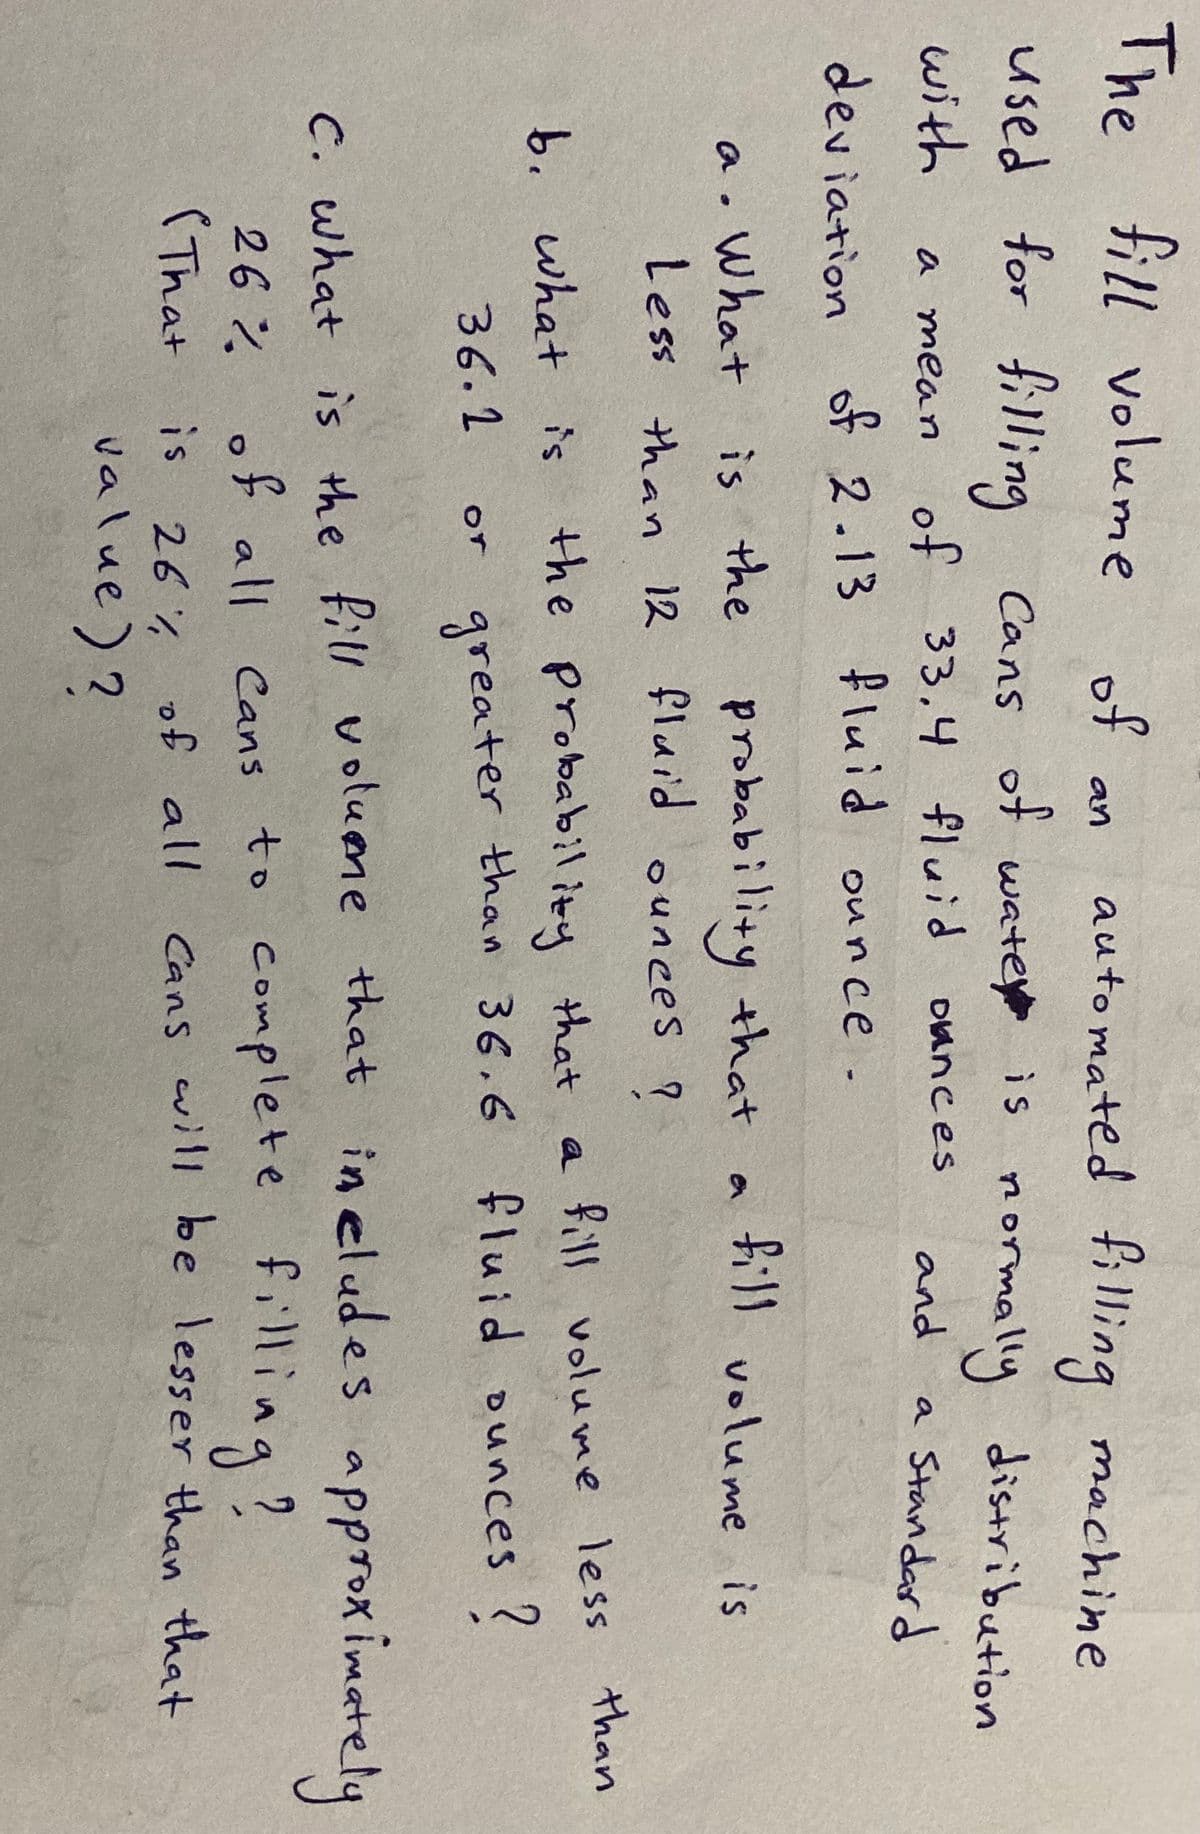 The fill volume of an automated filling machine
used for filling Cans of water is normally distribution
with a mean of 33.4 fluid ounces and a standard
deviation of 2.13 fluid ounce.
a. What is the probability that a fill volume is
Less than 12 fluid ounces ?
b. what is the probability that a fill volume less than
36.1 or greater than 36.6 fluid ounces ?
c. what is the fill volume that includes approximately
26% of all Cans to complete filling ?
(That is 26% of all Cans will be lesser than that
value) ?